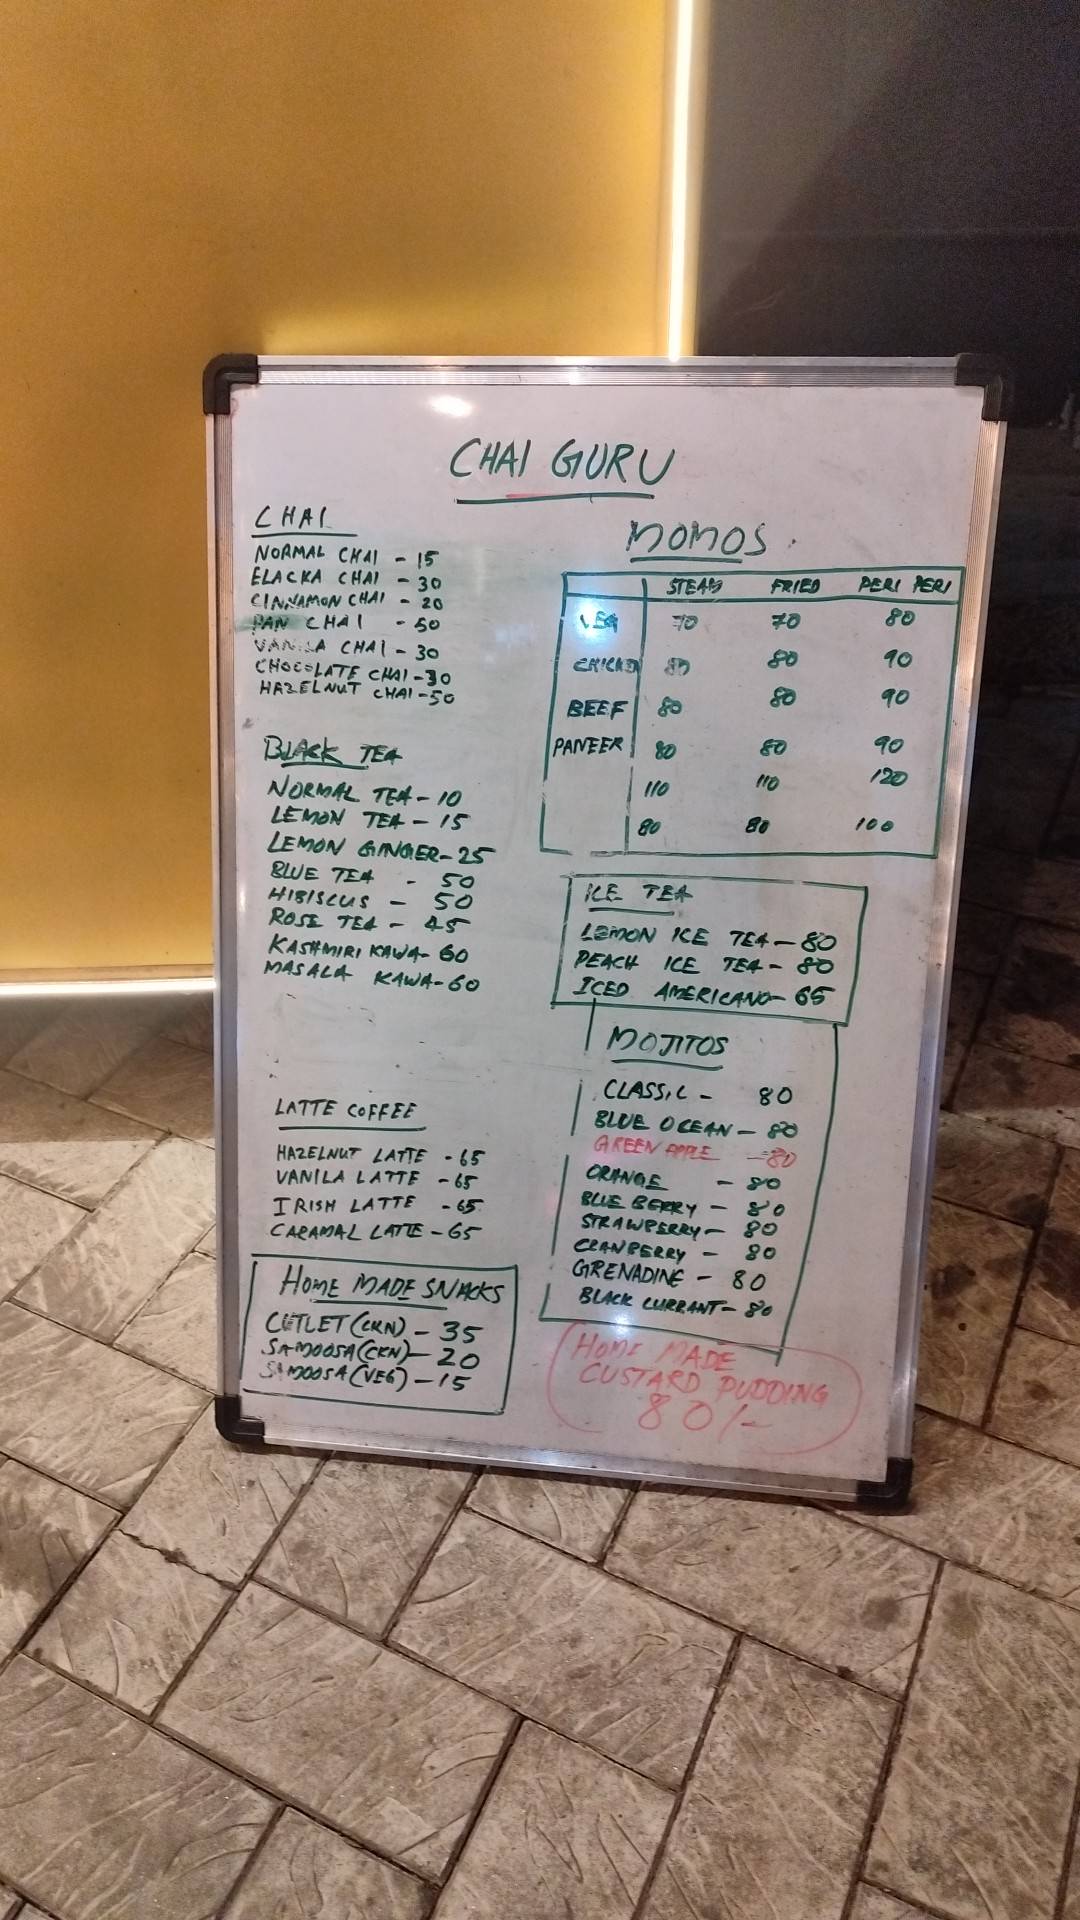 CHAI GURU
CHAI
NORMAL CHAI - 15
ELACKA CHAI - 30
CINNAMON CHAI - 20
PAN CHAI - 50
VANILA CHAI - 30
CHOCOLATE CHAI - 30
HAZELNUT CHAI - 50
BLACK TEA
NORMAL TEA - 10
LEMON TEA - 15
LEMON GINGER - 25
BLUE TEA - 50
HIBISCUS - 50
ROSE TEA - 45
KASHMIRI KAWA - 60
MASALA KAWA - 60
LATTE COFFEE
HAZELNUT LATTE - 65
VANILA LATTE - 65
IRISH LATTE - 65
CARAMAL LATTE - 65
HOME MADE SNACKS
CUTLET (CKN) - 35
SAMOOSA (CKN) - 20
SAMOOSA (VEG) - 15
MOMOS
STEAM FRIED PERI PERI
VEG 70 70 80
CHICKEN 80 80 90
BEEF 80 80 90
PANEER 80 80 90
110 110 120
80 80 100
ICE TEA
LEMON ICE TEA - 80
PEACH ICE TEA - 80
ICED AMERICANO - 65
MOJITOS
CLASSIC - 80
BLUE OCEAN - 80
GREEN APPLE - 80
ORANGE - 80
BLUE BERRY - 80
STRAWBERRY - 80
CRANBERRY - 80
GRENADINE - 80
BLACK CURRANT - 80
HOME MADE
CUSTARD PUDDING
80/-